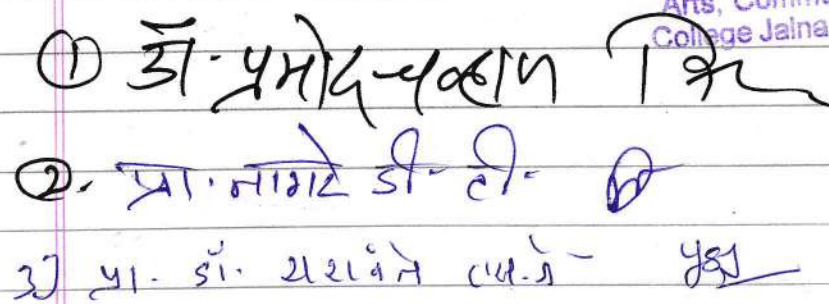 Arts, Comm
College Jalna
① डॉ. प्रमोद चव्हाण
②. प्रा. नागरे डी. टी.
3) प्रा. डॉ. यशवंते